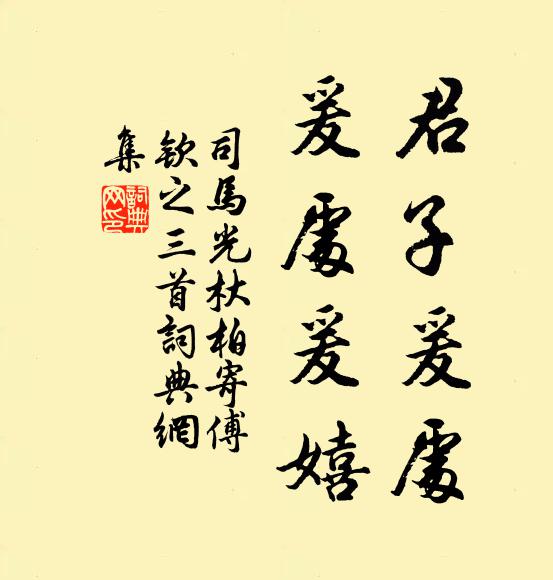 君子爰處
爰處爰嬉
司馬光杕柏寄傅
欽之三首詞典網
集
詞典網印